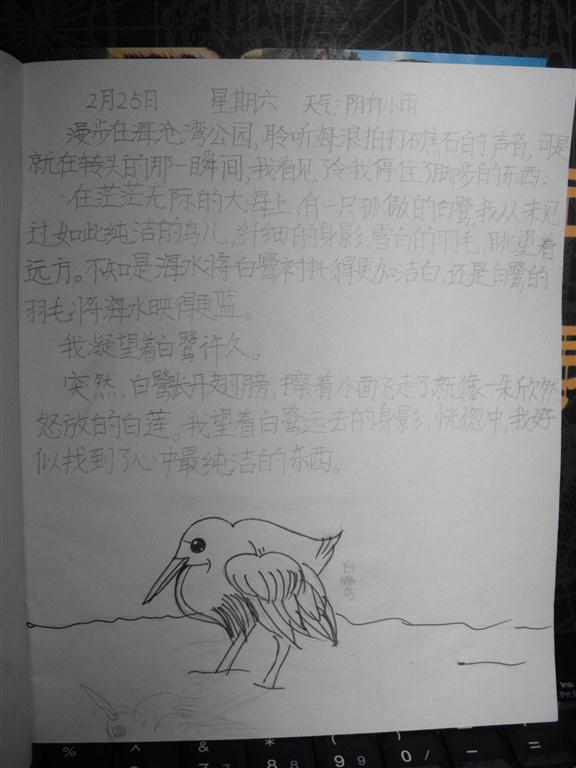 2月25日 星期六 天气:阴有小雨
漫步在海沧湾公园,聆听海浪拍打礁石的声音,可是
就在转头的那一瞬间,我看见了令我停住了脚步的东西。
在茫茫无际的大海上,有一只孤傲的白鹭,我从未见
过如此纯洁的鸟儿,纤细的身影,雪白的羽毛,眺望着
远方。不知是海水将白鹭衬托得更加洁白,还是白鹭的
羽毛将海水映得更蓝。
我凝望着白鹭许久。
突然,白鹭张开翅膀,擦着水面飞走了,就像一朵欣然
怒放的白莲。我望着白鹭远去的身影,恍惚中,我好
似找到了心中最纯洁的东西。
白鹭鸟
Ins
% ^ & * ( ) -
7 8 9 0